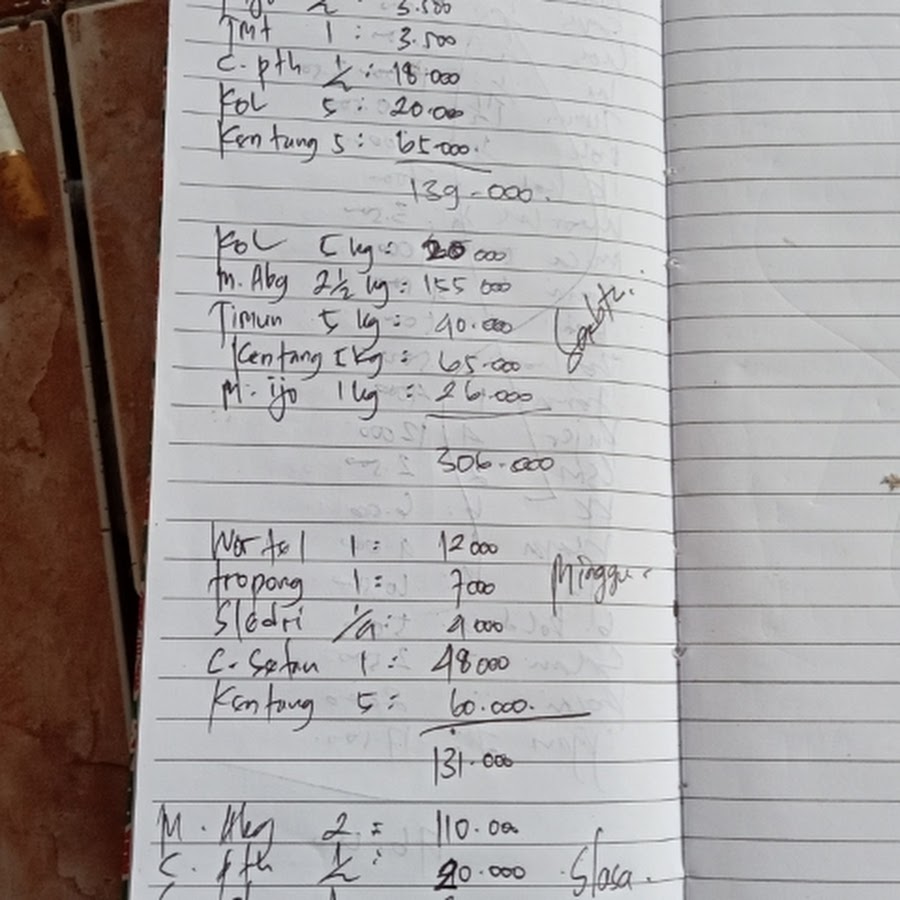 ½ 3.500
Tmt 1 : 3.500
C. pth ½ : 18.000
Kol 5 : 20.000
Kentang 5 : 65.000.
139.000.
Kol 5 kg : 20 000
M. Abg 2½ kg : 155 000
Timun 5 kg : 40.000 Sabtu.
Kentang 5 kg : 65.000
M. ijo 1 kg : 26.000
306.000
Wortel 1 : 12 000
tropong 1 : 7000 Minggu.
Sledri ¼ : 4 000
C. Setan 1 : 48 000
Kentang 5 : 60.000.
131.000
M. Abg 2 : 110.000
C. pth ½ : 20.000 Slasa.